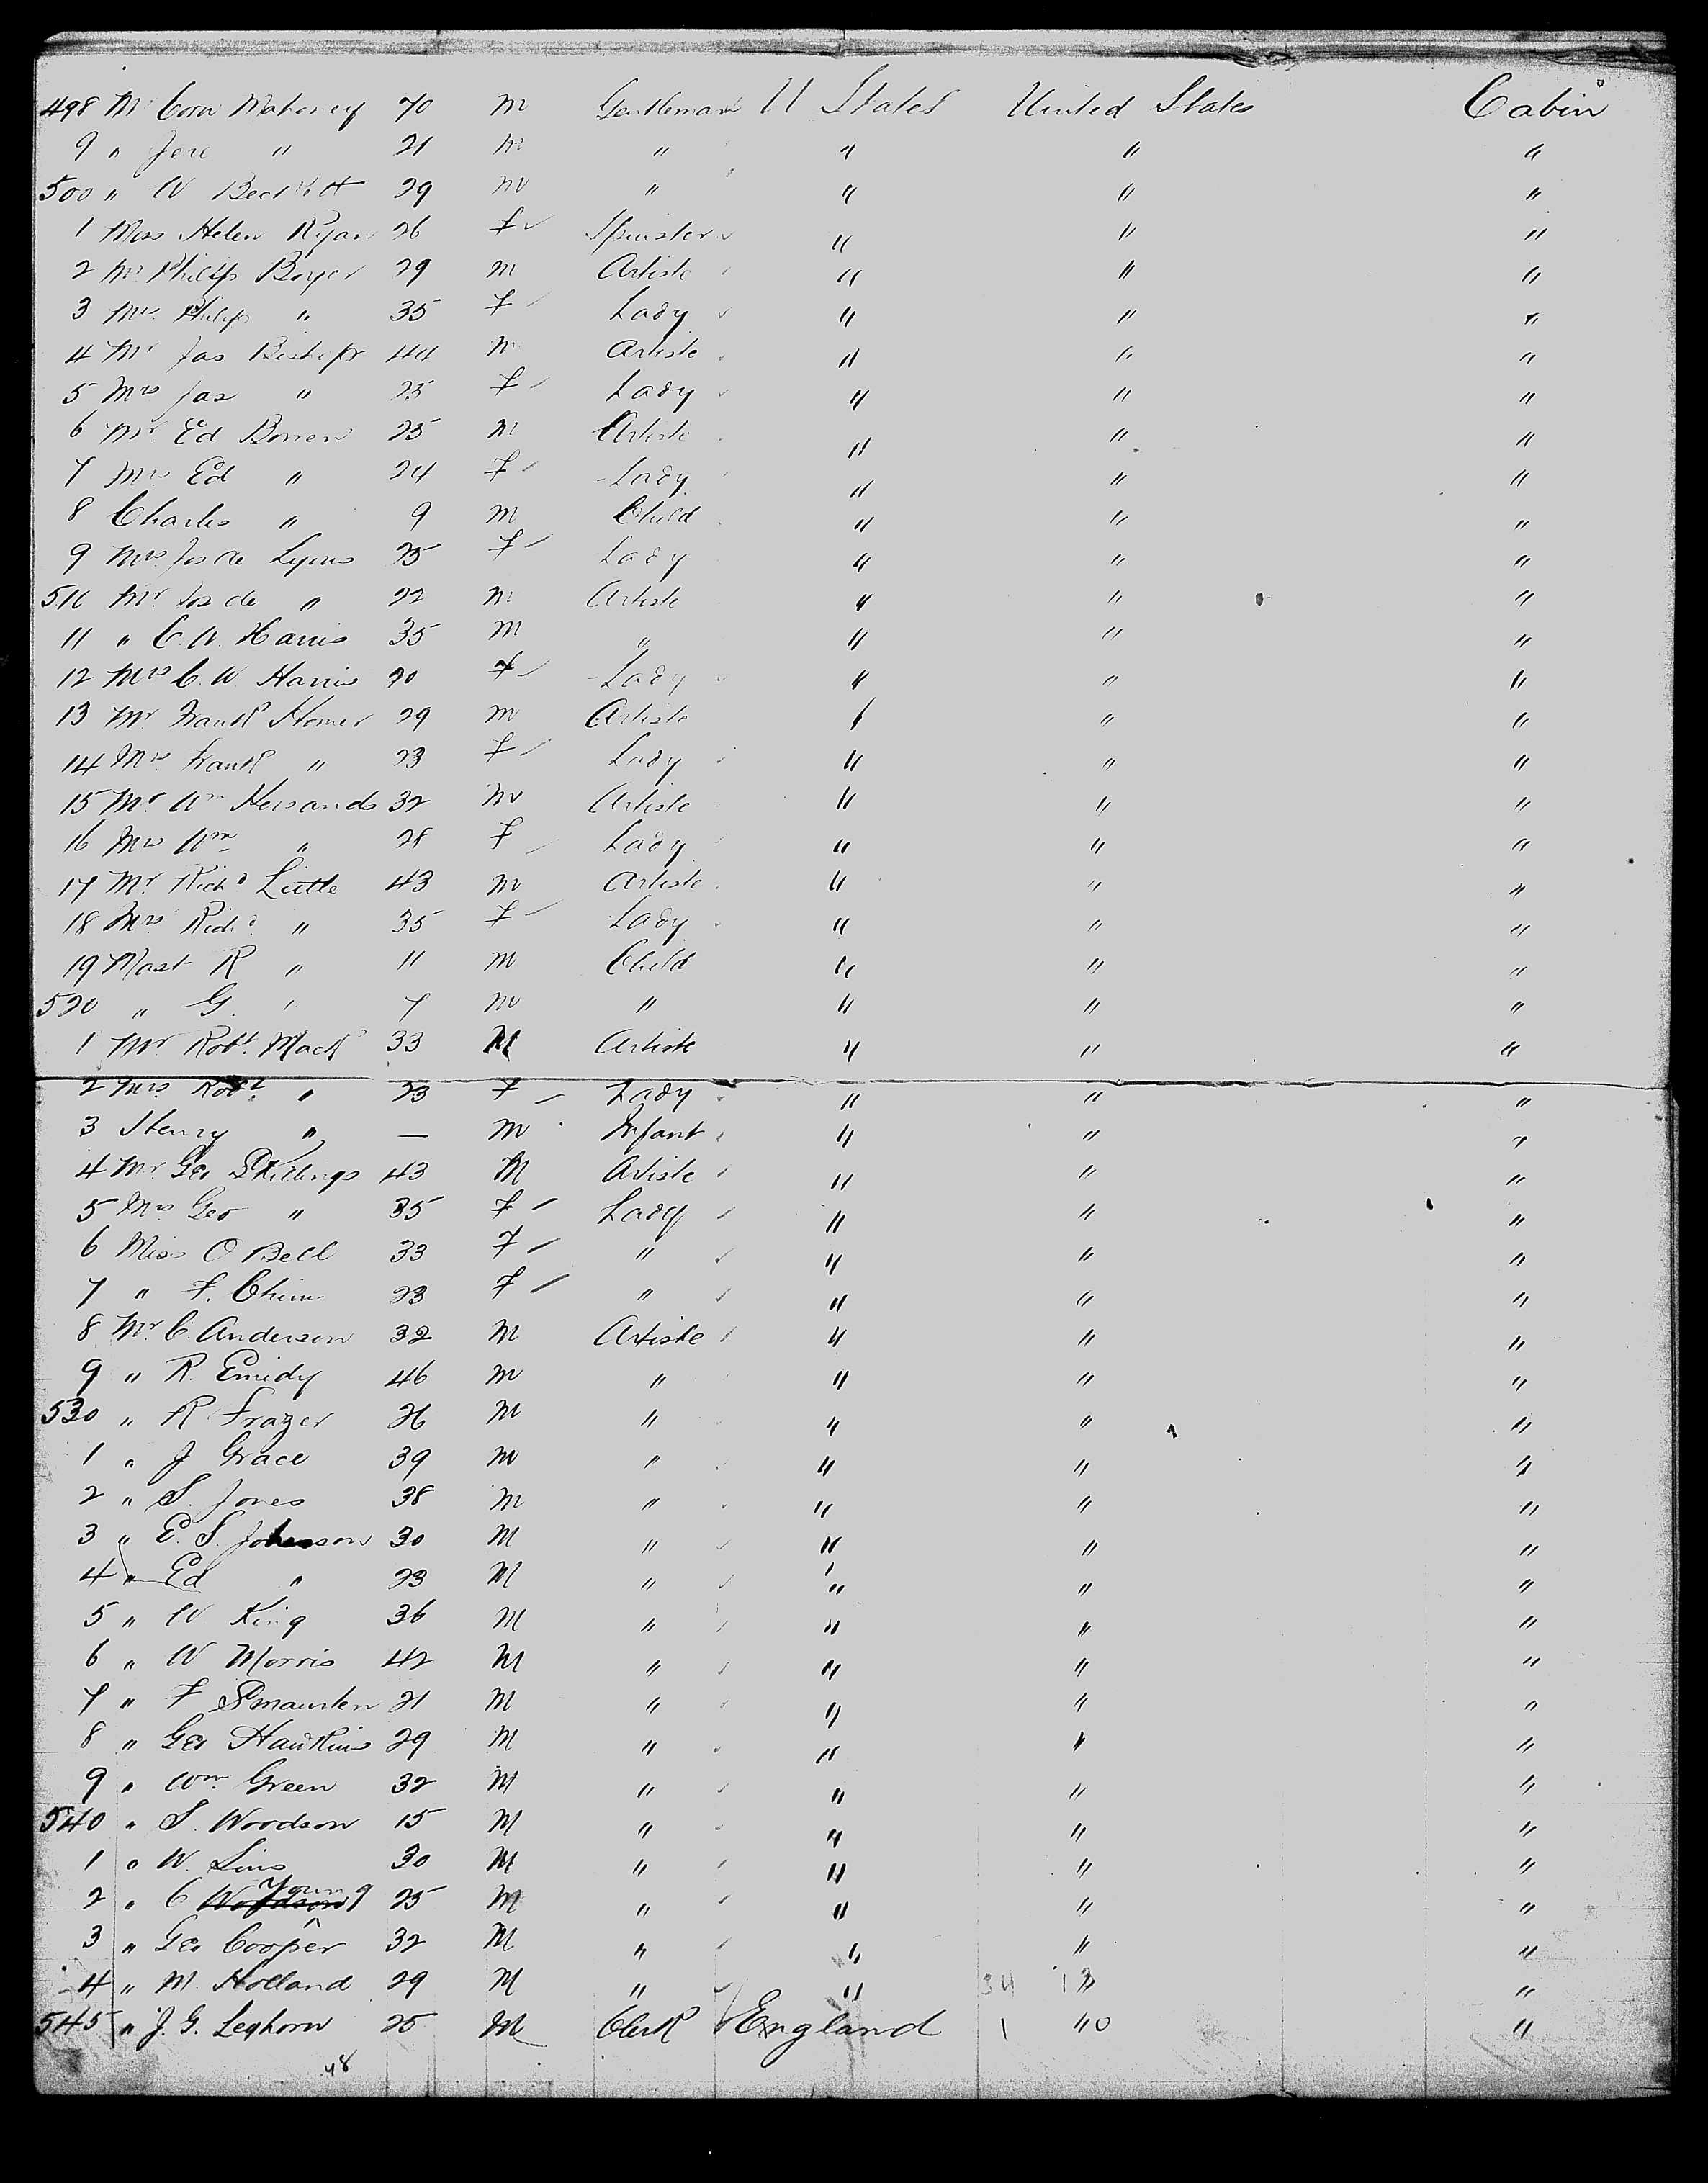 498 Mr Corn Mahoney 70 m Gentleman U States United States Cabin
9 " Jere " 21 m " " " "
500 " W Beckett 29 m " " " "
1 Miss Helen Ryan 26 f Spinster " " "
2 Mr Philip Boyer 29 m Artiste " " "
3 Mrs Philip " 35 f Lady " " "
4 Mr Jas Bishop 44 m Artiste " " "
5 Mrs Jas " 25 f Lady " " "
6 Mr Ed Bowen 25 m Artiste " " "
7 Mrs Ed " 24 f Lady " " "
8 Charles " 9 m Child " " "
9 Mrs Jos de Lyons 25 f Lady " " "
510 Mr Jos de " 22 m Artiste " " "
11 " C.W. Harris 35 m " " " "
12 Mrs C.W Harris 20 f Lady " " "
13 Mr Frank Homer 29 m Artiste " " "
14 Mrs Frank " 23 f Lady " " "
15 Mr Wm Kersands 32 m Artiste " " "
16 Mrs Wm " 28 f Lady " " "
17 Mr Richd Little 43 m Artiste " " "
18 Mrs Richd " 35 f Lady " " "
19 Mast R " 11 m Child " " "
520 " G. " 7 m " " " "
1 Mr Robt. Mack 33 M Artiste " " "
2 Mrs Robt. " 23 f Lady " " "
3 Henry " — m Infant " " "
4 Mr Geo Skillings 43 M Artiste " " "
5 Mrs Geo " 35 f Lady " " "
6 Miss O Bell 33 f " " " "
7 " F. 23 f " " " "
8 Mr C. Anderson 32 M Artiste " " "
9 " R. Emidy 46 m " " " "
530 " R Frazer 26 M " " " "
1 " J Grace 39 m " " " "
2 " S. Jones 38 m " " " "
3 " E. S. Johnson 30 M " " " "
4 " Ed " 23 M " " " "
5 " W King 36 M " " " "
6 " W Morris 42 M " " " "
7 " F 21 M " " " "
8 " Geo Hawkins 29 M " " " "
9 " Wm Green 32 M " " " "
540 " S. Woodson 15 M " " " "
1 " W. Sims 30 M " " " "
2 " C Woodson Young 25 M " " " "
3 " Geo Cooper 32 M " " " "
4 " M. Holland 29 M " " 34 12 " "
545 " J. G. Leghorn 25 M Clerk England 1 "0 "
48